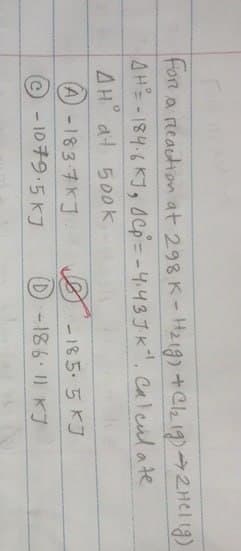 for a reaction at 298K - H₂(g) + Cl₂(g) → 2HCl(g)
ΔH° = -184.6 KJ, ΔCp° = -4.43 J K⁻¹. Calculate
ΔH° at 500K
Ⓐ -183.7 KJ Ⓑ -185.5 KJ
Ⓒ -1079.5 KJ Ⓓ -186.11 KJ